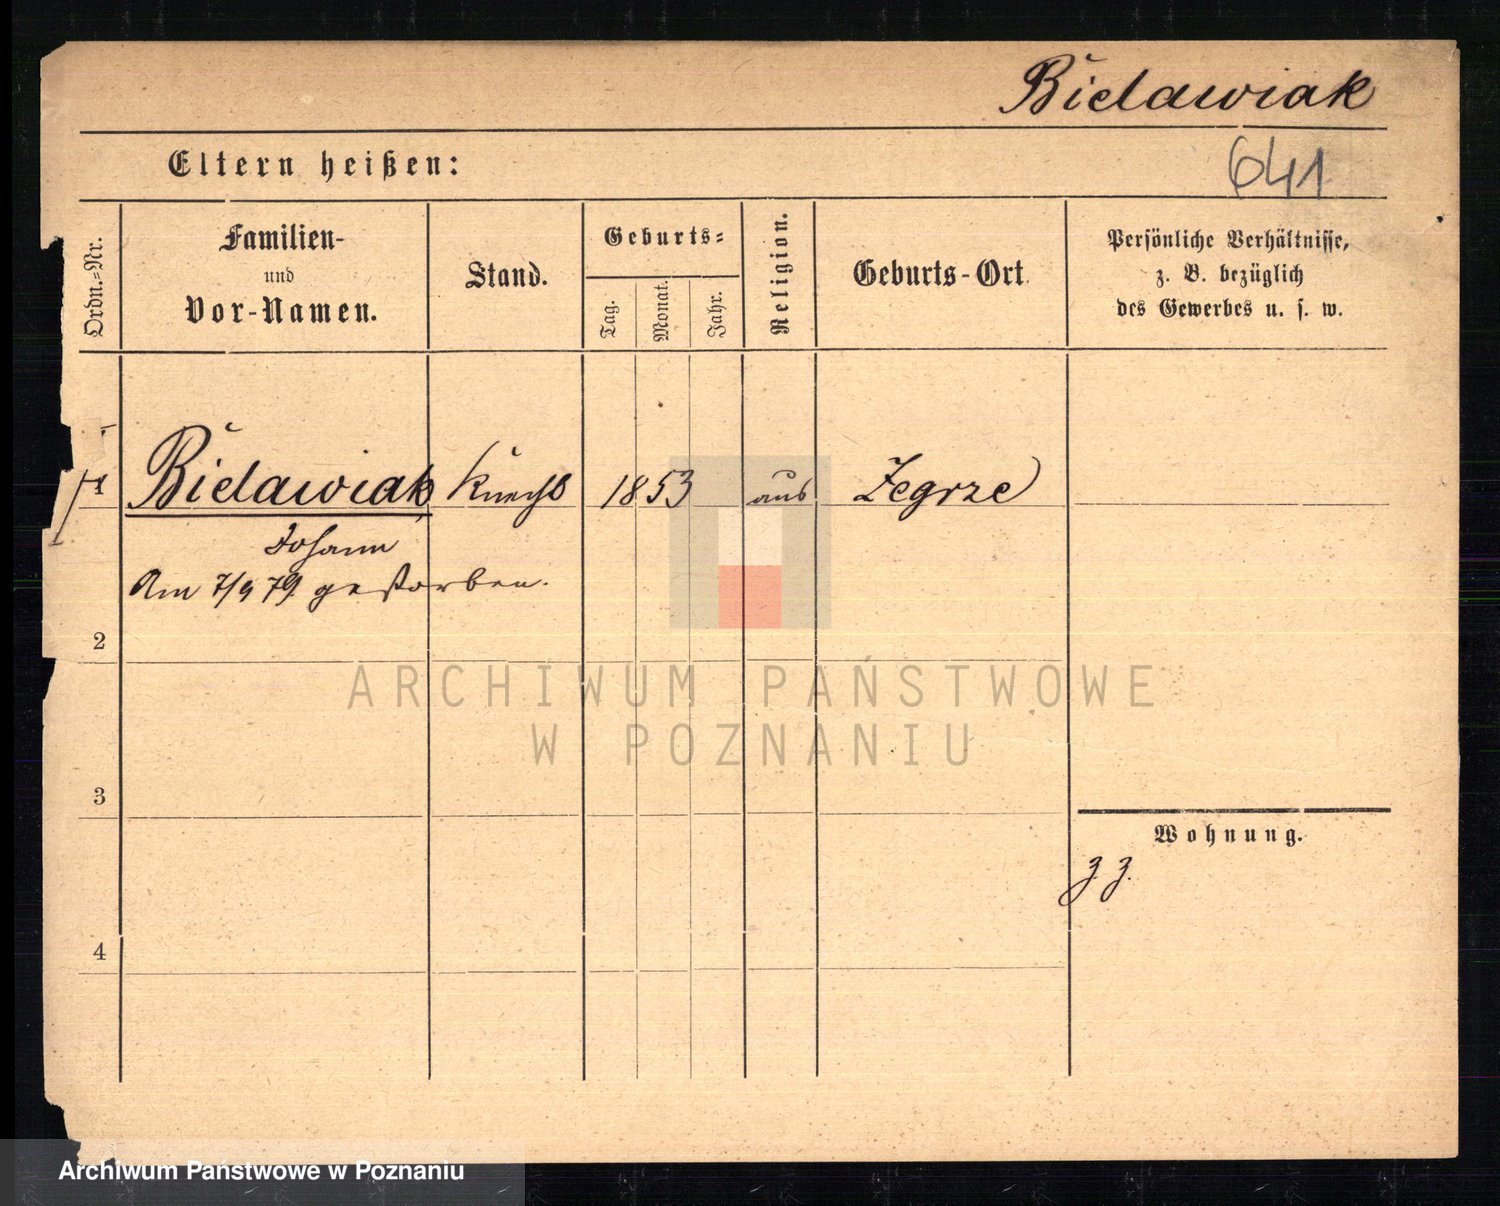 Bielawiak
Eltern heißen:
641
Ordn.-Nr.
Familien-
und
Vor-Namen.
Stand.
Geburts-
Tag.
Monat.
Jahr.
Religion.
Geburts-Ort.
Persönliche Verhältnisse,
z. B. bezüglich
des Gewerbes u. s. w.
1 Bielawiak Knecht 1853 aus Zegrze
Johann
Am 7/9 79. gestorben.
2
ARCHIWUM PAŃSTWOWE
W POZNANIU
3
Wohnung.
4
Archiwum Państwowe w Poznaniu